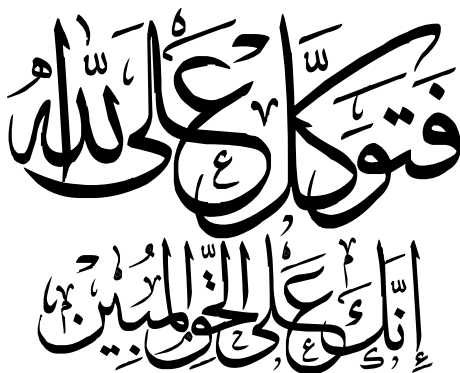 فَتَوَكَّلْ عَلَى اللهِ
إِنَّكَ عَلَى الْحَقِّ الْمُبِينِ